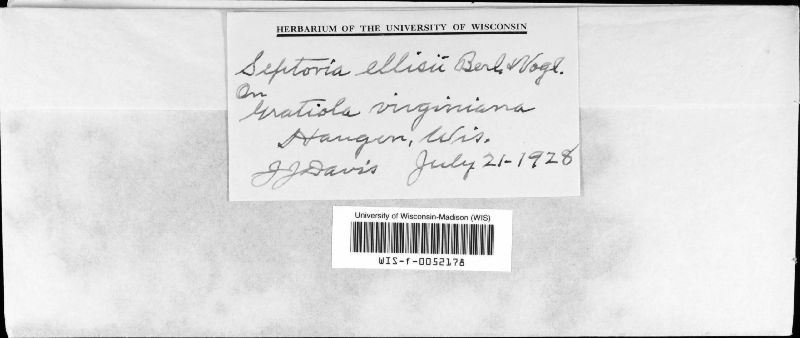 HERBARIUM OF THE UNIVERSITY OF WISCONSIN
Septoria ellisii Berl. & Vogl.
On
Gratiola virginiana
Haugen, Wis.
J J Davis July 21-1928
University of Wisconsin-Madison (WIS)
WIS-f-0052178